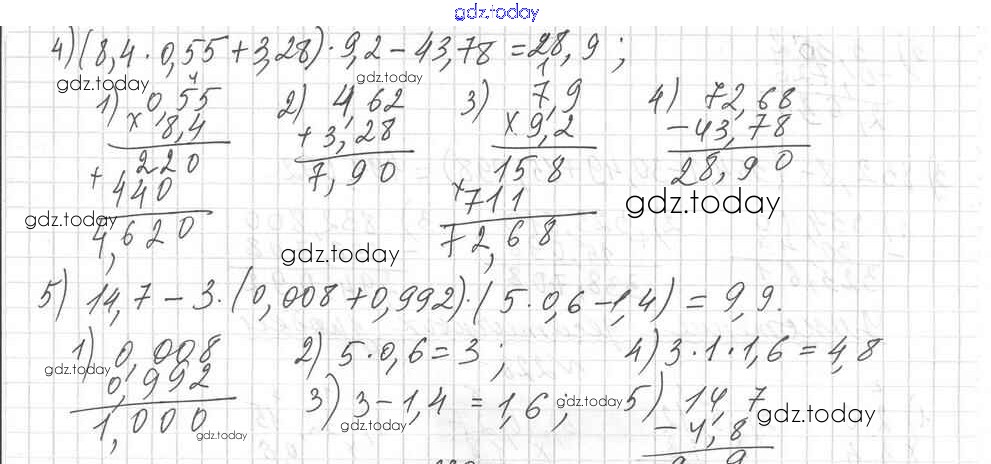 gdz.today
4) (8,4 · 0,55 + 3,28) · 9,2 − 43,78 = 28,9 ;
gdz.today gdz.today
1) 0,55 2) 4,62 3) 7,9 4) 72,68
× 8,4 + 3,28 × 9,2 − 43,78
220 7,90 158 28,90
+ 440 × 711 gdz.today
gdz.today 4,620 gdz.today 72,68
5) 14,7 − 3 · (0,008 + 0,992) · (5 · 0,6 − 1,4) = 9,9.
1) 0,008 2) 5 · 0,6 = 3 ; 4) 3 · 1 · 1,6 = 4,8
gdz.today 0,992 3) 3 − 1,4 = 1,6 , gdz.today 5) 14,7
1,000 gdz.today gdz.today − 4,8 gdz.today